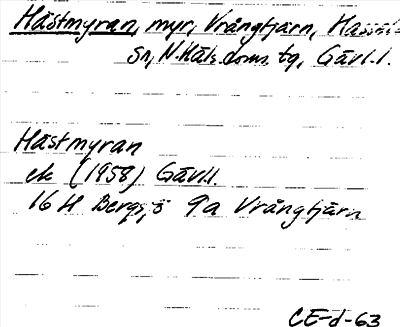 Hästmyran, myr, Vrångtjärn, Hassela
sn, N. Häls. doms. tg, Gävl. l.
Hästmyran
ek (1958) Gävl.l.
16 H Bergsjö 9a Vrångtjärn
CE-d-63